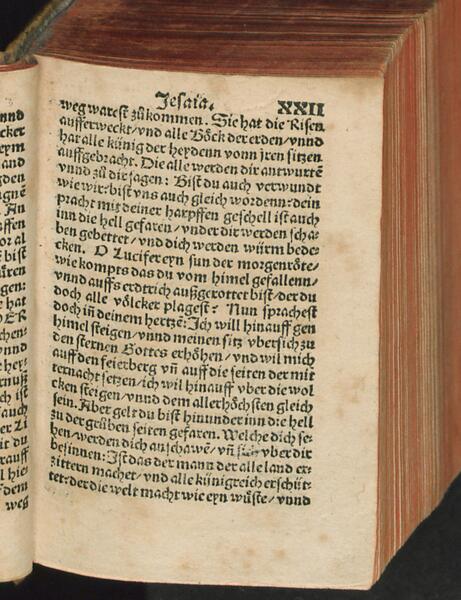 Jesaia. XXII
weg warest zů kommen. Sie hat die Risen
aufferweckt/vnd alle Böck der erden/vnnd
hat alle künig der heydenn vonn jren sitzen
auffgebracht. Die alle werden dir antwurtē
vnnd zů dir sagen: Bist du auch verwundt
wie wir: bist vns auch gleich wordenn: dein
pracht mit deiner harpffen geschell ist auch
inn die hell gefaren/vnder dir werden scha-
ben gebettet/vnd dich werden würm bede-
cken. O Lucifer eyn sun der morgenröte/
wie kompts das du vom himel gefallenn/
vnnd auffs erdtrich außgerottet bist/der du
doch alle völcker plagest? Nun sprachest
doch iñ deinem hertzē: Ich will hinauff gen
himel steigen/vnnd meinen sitz vber sich zů
den sternen Gottes erhöhen/vnd wil mich
auff den feierberg vñ auff die seiten der mit
ternacht setzen/ich wil hinauff vber die wol
cken steigen/vnnd dem allerhöchsten gleich
sein. Aber gelt du bist hinunder inn die hell
zů der grůben seiten gefaren. Welche dich se-
hen/werden dich anschawē/vñ sich vber dir
besinnen: Ist das der mann der alle land er-
zittern machet/vnd alle künigreich erschüt-
tet: der die welt macht wie eyn wůste/vnnd
nnd
cker
eym
and
den
An
bist
gen:
hat
auch
du
dem
weg